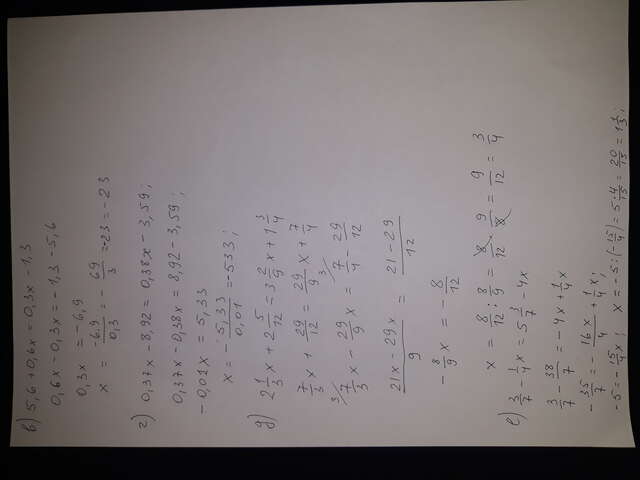 в) 5,6 + 0,6x = 0,3x - 1,3
0,6x - 0,3x = -1,3 - 5,6
0,3x = -6,9
x = -6,9/0,3 = - 69/3 = -23 = -23
г) 0,37x - 8,92 = 0,38x - 3,59;
0,37x - 0,38x = 8,92 - 3,59;
-0,01x = 5,33
x = - 5,33/0,01 = -533;
д) 2 1/3 x + 2 5/12 = 3 2/9 x + 1 3/4
7/3 x + 29/12 = 29/9 x + 7/4
3/ 7/3 x - 29/9 x = 3/ 7/4 - 29/12
21x - 29x/9 = 21 - 29/12
- 8/9 x = - 8/12
x = 8/12 : 8/9 = 8/12 · 9/8 = 9/12 = 3/4
е) 3/7 - 1/4 x = 5 3/7 - 4x
3/7 - 38/7 = -4x + 1/4 x
- 35/7 = - 16x/4 + 1/4 x;
-5 = - 15/4 x; x = -5 : (- 15/4) = 5 · 4/15 = 20/15 = 1 1/3;